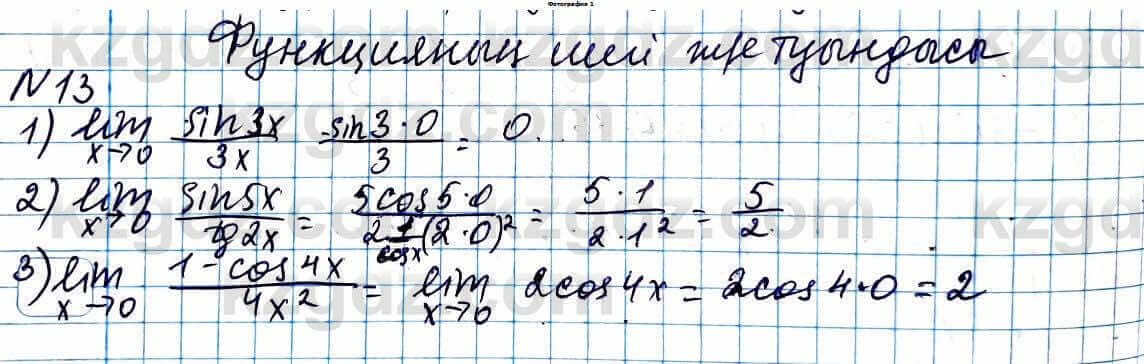 Фотография 1
Функцияның шегі және туындысы
N 13
1) lim x→0 sin3x/3x sin3·0/3 = 0.
2) lim x→0 sin5x/tg2x = 5cos5·0/2 1/cosx (2·0)² = 5·1/2·1² = 5/2
3) lim x→0 1-cos4x/4x² = lim x→0 2cos4x = 2cos4·0 = 2
kzgdz.com